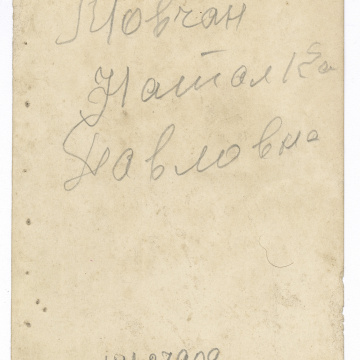 Мовчан
Наталка
Павловна